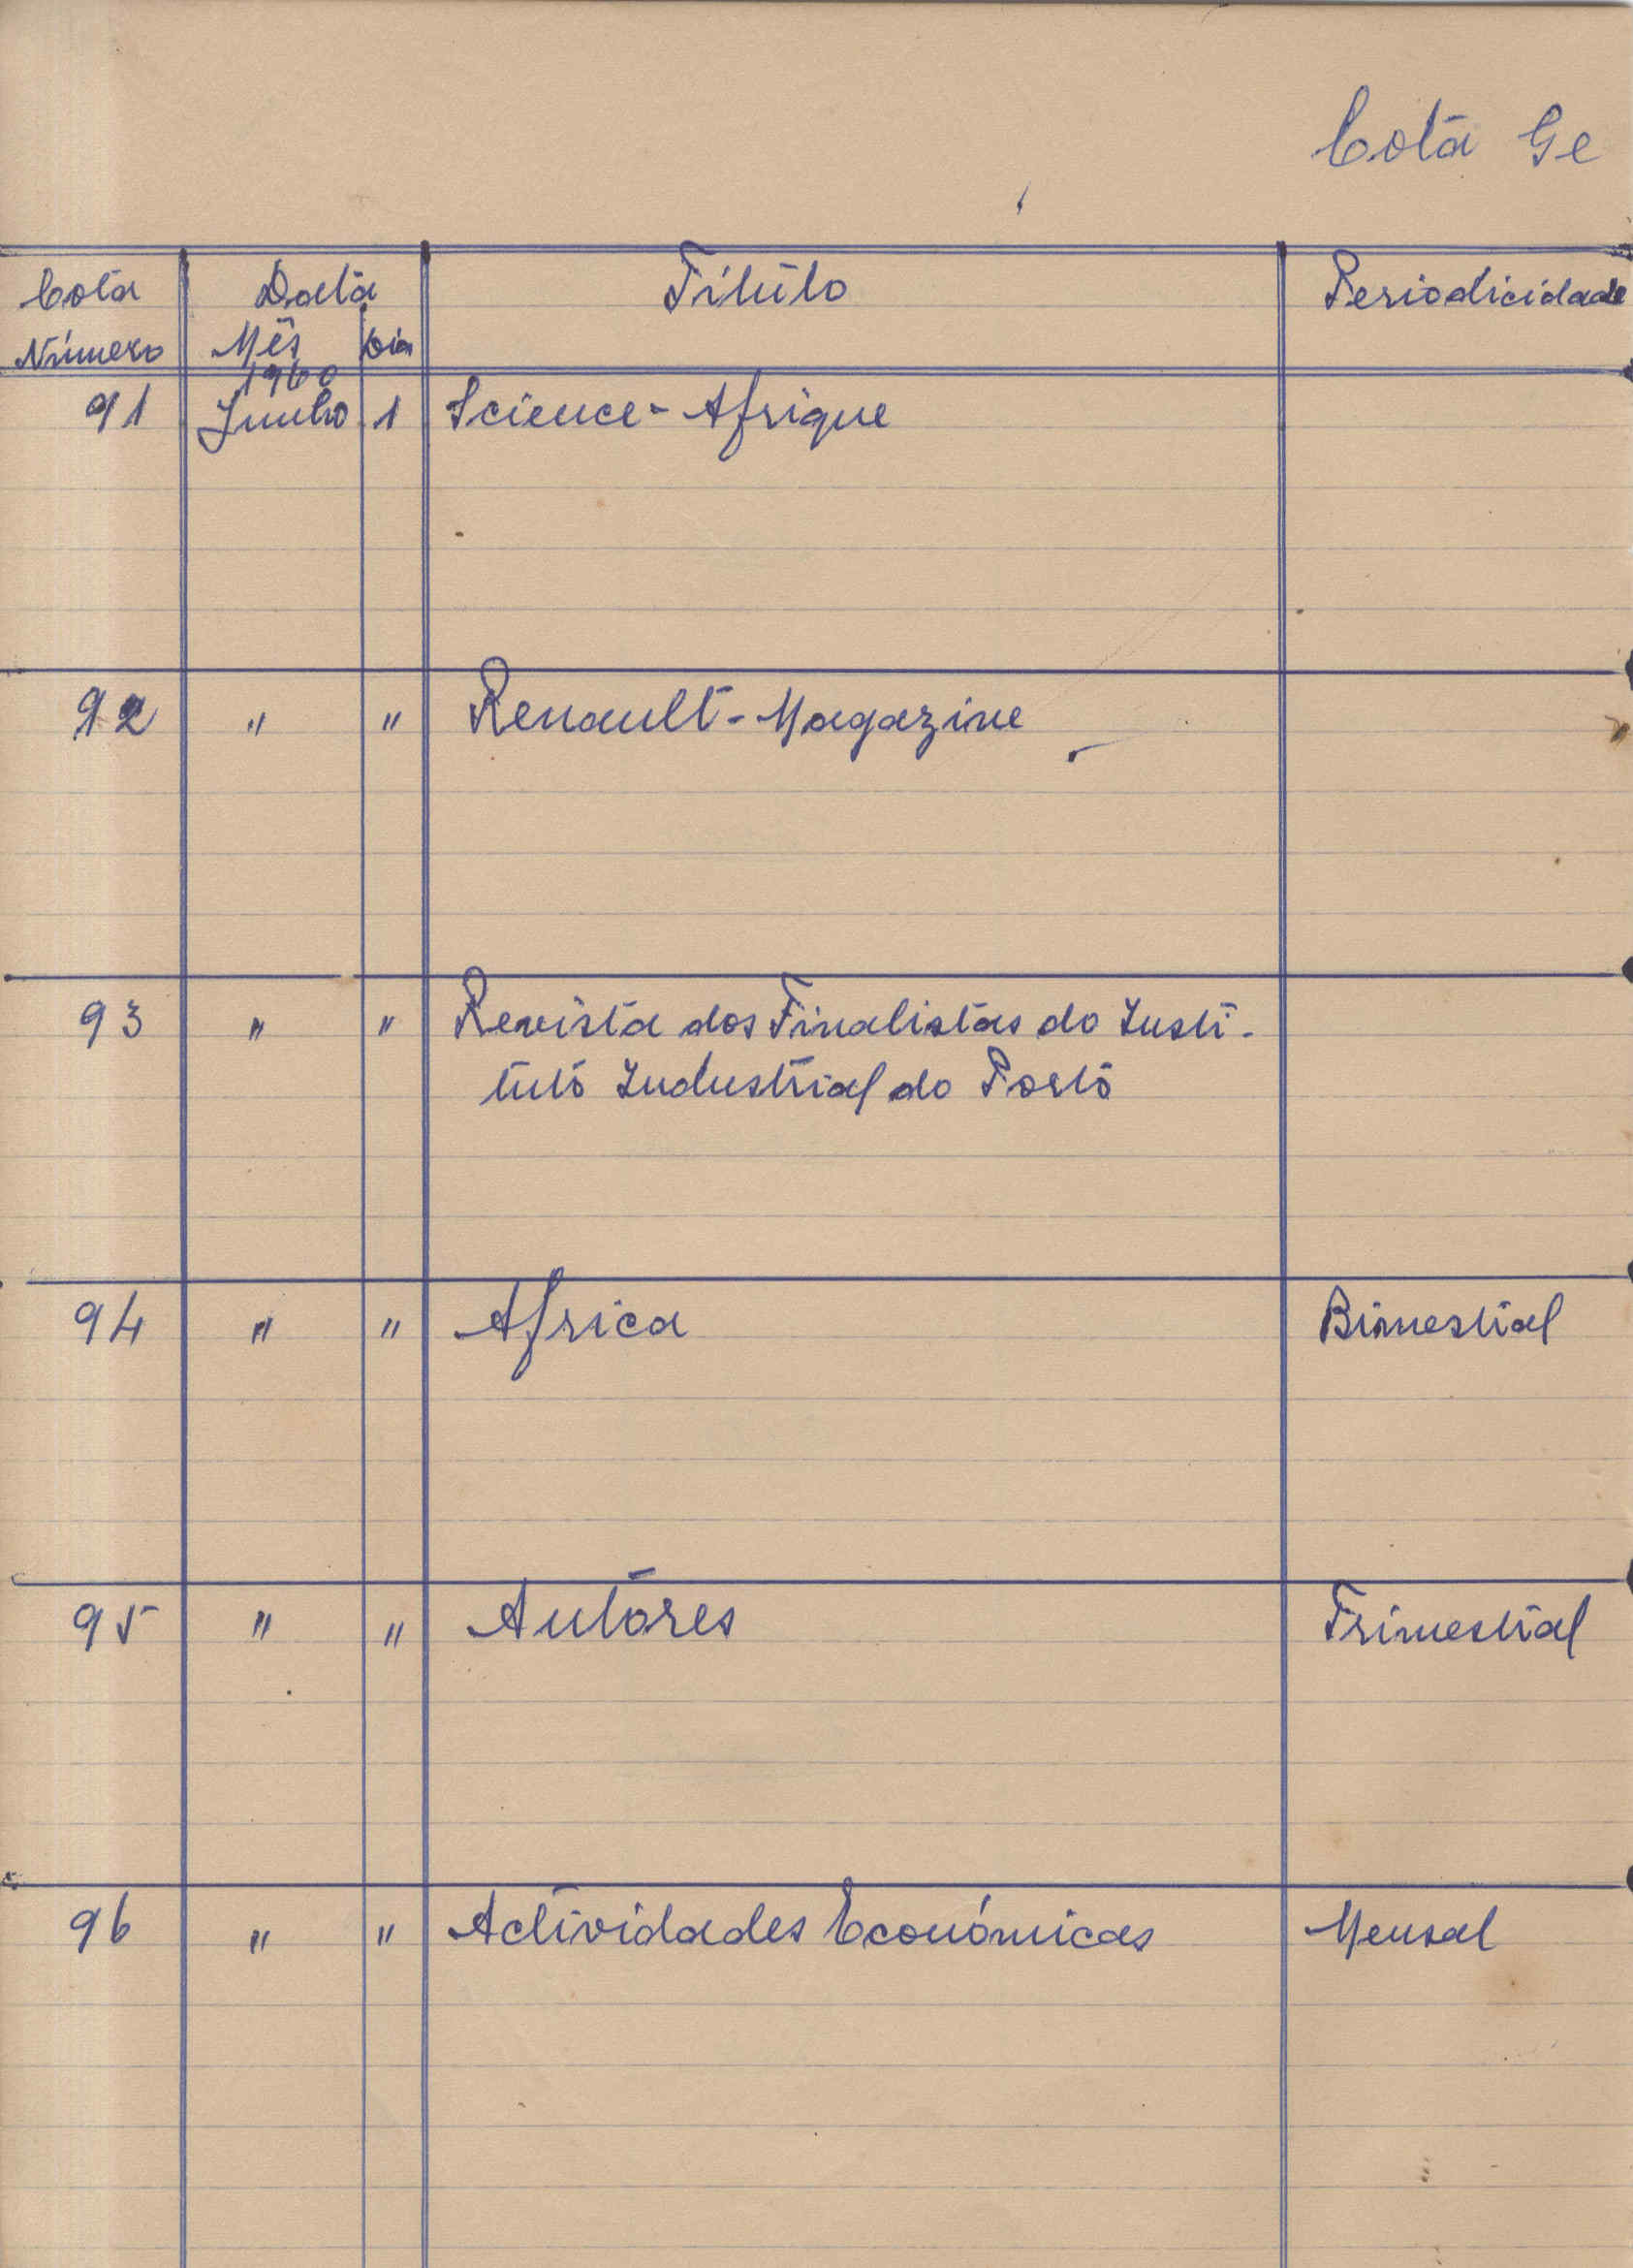 Cota Ge
Cota Data Título Periodicidade
Número Mês Dia
1960
91 Junho 1 Science-Afrique
92 " " Renault-Magazine
93 " " Revista dos Finalistas do Insti-
tuto Industrial do Porto
94 " " Africa Bimestral
95 " " Autores Trimestral
96 " " Actividades Económicas Mensal